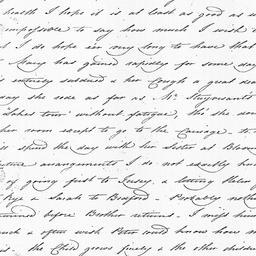 health I hope it is at least as good as
impossible to say how much I wish
I do hope ere very long to have that
Mary has gained rapidly for some day
is entirely subdued & her Cough a great dea
day she rode as far as Mr Stuyvesant's
without fatigue, tho' she do
her room except to go to the Carriage. to
spend the day with her Sister at
arrangements I do not exactly kno
of going first to Jersey, & letting Helen
Rye & Sarah to Bedford - Probably noth
before Brother returns. I miss him
much & often wish Peter could know how m
is. the Child grows finely & the other childre